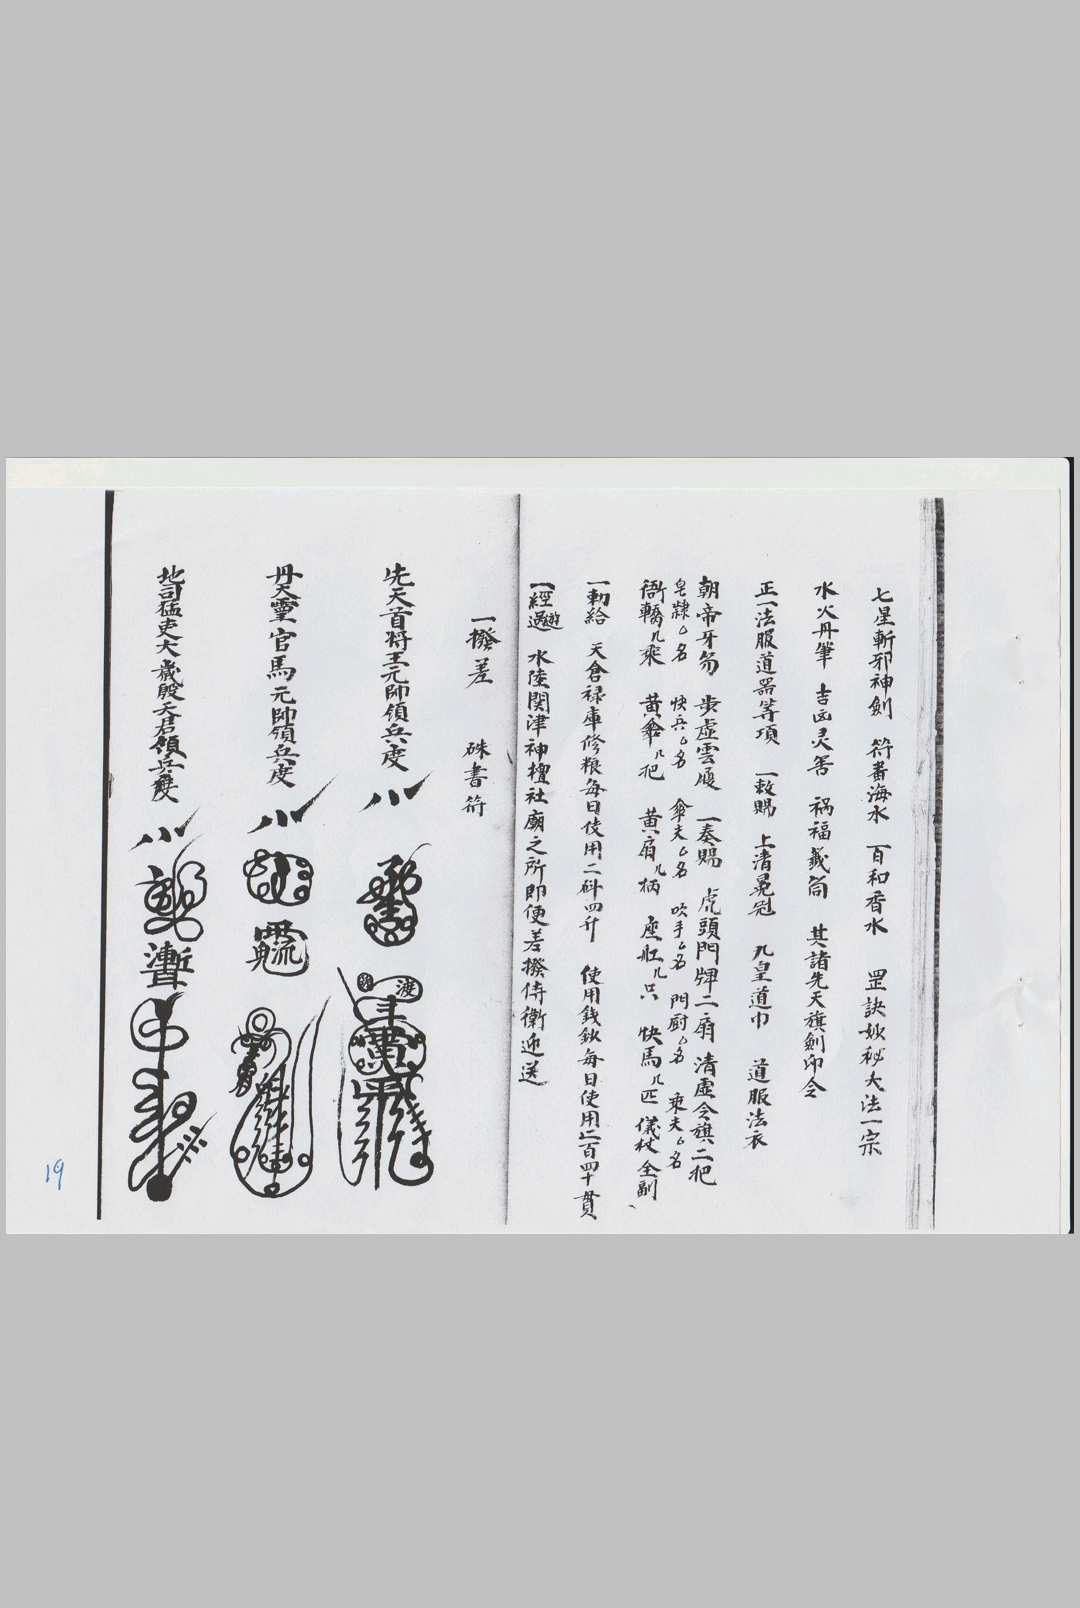 七星斬邪神劍 符畨海水 百和香水 罡訣妙秘大法一宗
水火丹筆 吉凶灵筶 禍福籤筒 其諸先天旗劍印令
正一法服道器等項 一敕賜 上清冕冠 九皇道巾 道服法衣
朝帝牙笏 步虛雲履 一奏賜 虎頭門牌二扇 清虛令旗二把
皂隸厶名 快兵厶名 傘夫厶名 吹手厶名 門厨厶名 乘夫厶名
衙轎几乘 黄傘几把 黄扇几柄 座舡几只 快馬几匹 儀杖全副
一勅給 天倉禄庫修粮每日使用二㪷四升 使用錢鈔每日使用二百四十貫
一經過遊 水陸関津神壇社廟之所即便差撥侍衛迎送
一撥差 硃書符
先天首將王元帥領兵度
丹天靈官馬元帥領兵度
地司猛吏太歲殷天君領兵度
19